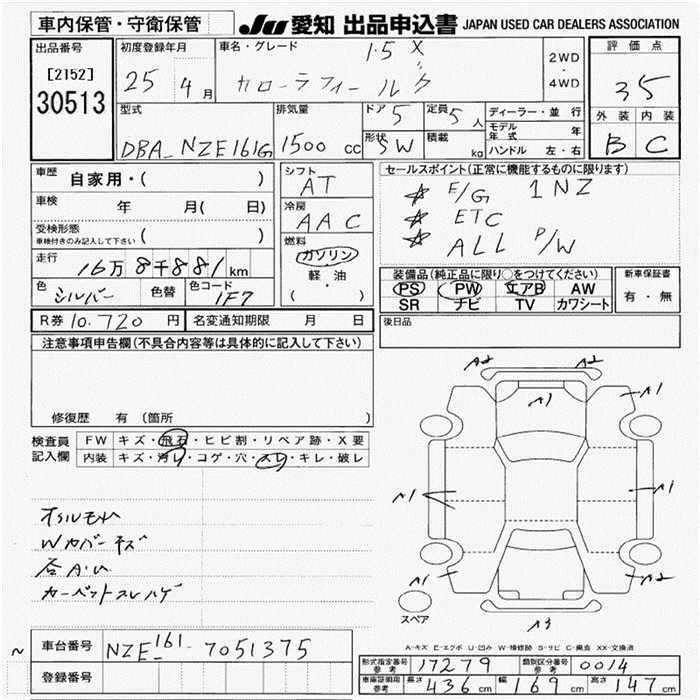 車内保管・守衛保管
JU 愛知 出品申込書 JAPAN USED CAR DEALERS ASSOCIATION
出品番号
[2152]
30513
初度登録年月
25年4月
車名・グレード
1.5 X
カローラフィールダ
2WD
・
4WD
評価点
3.5
外装 内装
B C
型式
DBA-NZE161G
排気量
1500 cc
ドア 5
定員 5人
形状 SW
積載 kg
ディーラー・並行
モデル年式 年
ハンドル 左・右
車歴 自家用・( )
車検 年 月( 日)
受検形態
車検付きのみ記入して下さい ( )
走行 16万8千881km
色 シルバー 色替 色コード 1F7
シフト
AT
冷房
AAC
燃料
ガソリン
軽油
( ・ )
セールスポイント(正常に機能するものに限ります)
☆ E/G 1NZ
☆ ETC
☆ ALL P/W
装備品(純正品に限り○をつけてください)
PS PW エアB AW
SR ナビ TV カワシート
新車保証書
有・無
R券 10,720円 名変通知期限 月 日
後日品
注意事項申告欄(不具合内容等は具体的に記入して下さい)
修復歴 有 (箇所 )
検査員記入欄
FW キズ・飛石・ヒビ割・リペア跡・X要
内装 キズ・汚れ・コゲ・穴・スレ・キレ・破レ
Wカバーキズ
カーペットスレハゲ
A2 A2
A1 A1
A1 A1
A1 A2
A3
スペア
A-キズ E-エクボ U-凹み W-補修跡 S-サビ C-腐食 XX-交換済
~
車台番号 NZE161-7051375
登録番号
形式指定番号 参考 17279 類別区分番号 参考 0014
車庫証明用 参考 長さ 436cm 幅 169cm 高さ 147cm